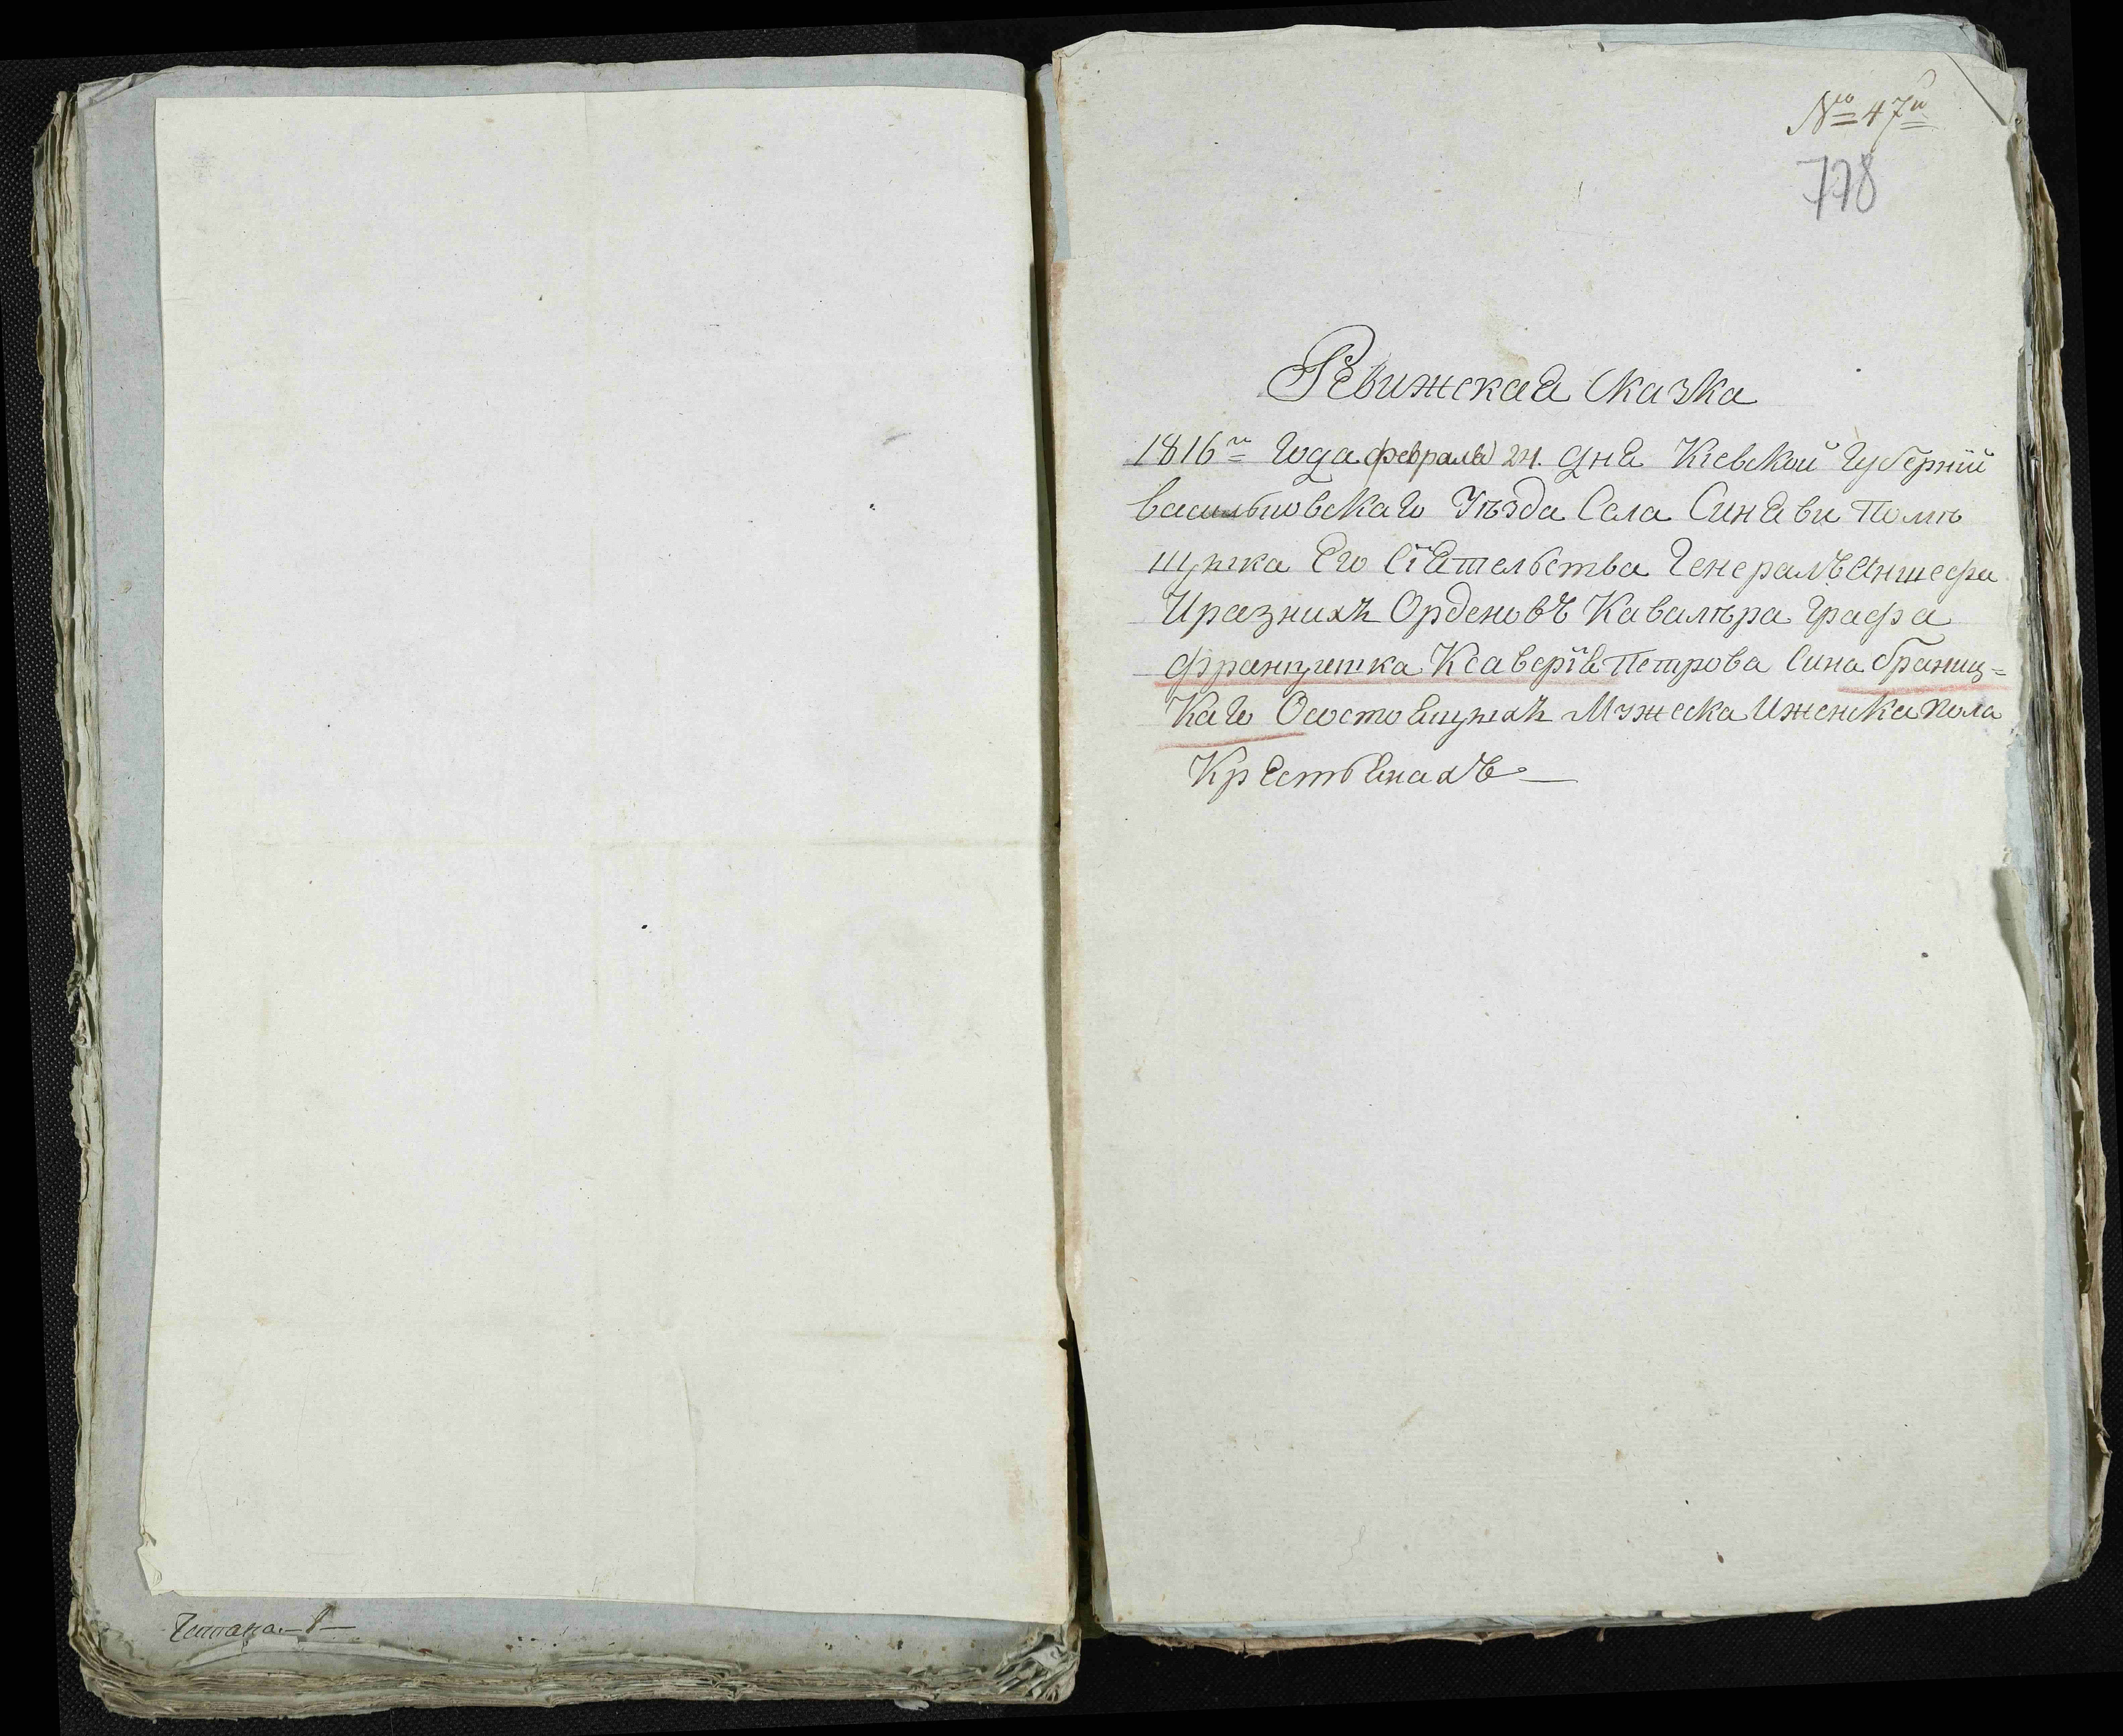 № 47й
778
Ревижская Сказка
1816го Года февраля 24. дня Кіевской Губерніи
васильковскаго Уѣзда Села Синяви Помѣ
щика Его Сіятельства Генералъ Аншефа
И разнихъ Орденовъ Кавалѣра Графа
Францишка Ксаверія Петрова Сина Браниц=
каго О состоящихъ Мужеска И женска пола
Крестьянахъ